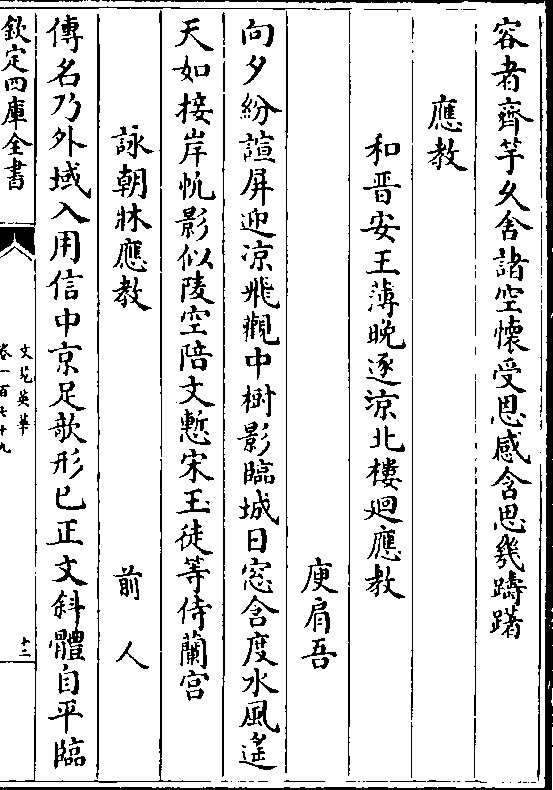 容者齊竽久舍諸空懷受恩感含思幾躊躇
應教
和晋安王薄晩逐凉北樓迴應教
庾肩吾
向夕紛諠屏迎凉飛觀中樹影臨城日窓含度水風遙
天如接岸㠶影似陵空陪文慙宋玉徒等侍蘭宫
詠朝牀應教
前人
傳名乃外域入用信中京足欹形已正文斜體自平臨
欽定四庫全書
文苑英華
卷一百七十九
十二